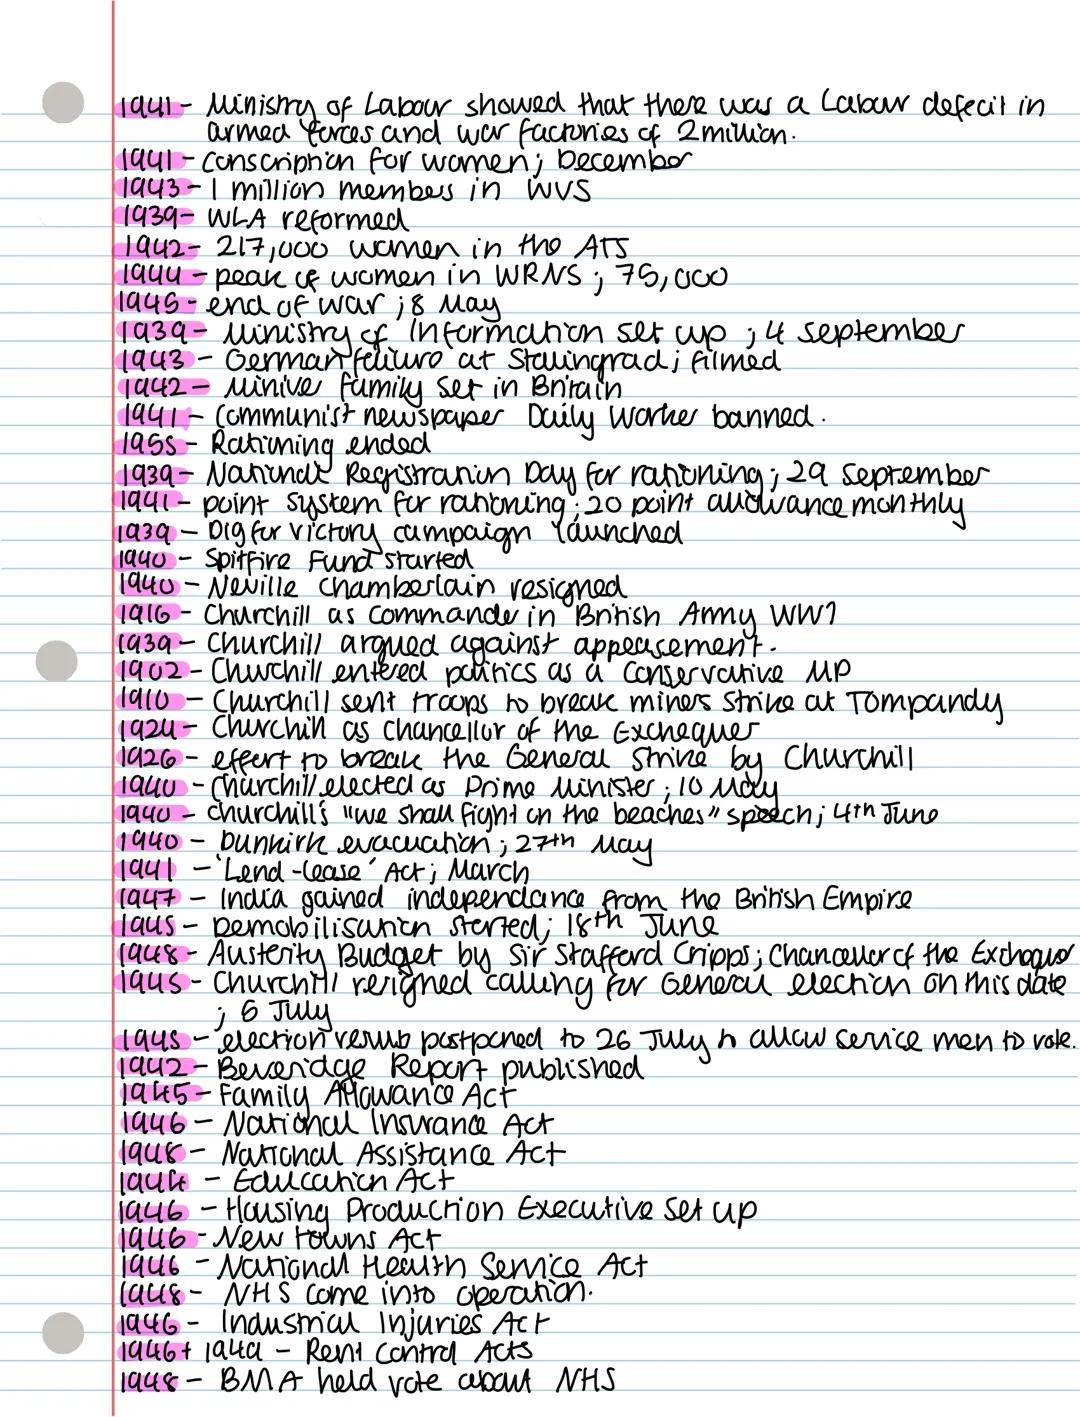 1941 - Ministry of Labour showed that there was a Labour defecit in
armed forces and war factories of 2 million.
1941 - conscription for women; December
1943 - 1 million members in WVS
1939 - WLA reformed
1942 - 217,000 women in the ATS
1944 - peak of women in WRNS; 75,000
1945 - end of war; 8 May
1939 - Ministry of Information set up; 4 september
1943 - German failure at Stalingrad; filmed
1942 - Minive family set in Britain
1941 - Communist newspaper Daily Worker banned.
1955 - Rationing ended
1939 - National Registration Day for rationing; 29 September
1941 - point system for rationing; 20 point allowance monthly
1939 - Dig for victory campaign launched
1940 - Spitfire Fund started
1940 - Neville Chamberlain resigned
1916 - Churchill as commander in British Army WW1
1939 - Churchill argued against appeasement.
1902 - Churchill entered politics as a conservative MP
1910 - Churchill sent troops to break miners strike at Tompandy
1924 - Churchill as Chancellor of the Exchequer
1926 - effort to break the General Strike by Churchill
1940 - Churchill elected as Prime Minister; 10 May
1940 - Churchill's "we shall fight on the beaches" speech; 4th June
1940 - Dunkirk evacuation; 27th May
1941 - 'Lend-lease' Act; March
1947 - India gained independance from the British Empire
1945 - Demobilisation started; 18th June
1948 - Austerity Budget by Sir Stafford Cripps; Chancellor of the Exchequer
1945 - Churchill resigned calling for General election on this date
; 5 July
1945 - election results postponed to 26 July to allow service men to vote.
1942 - Beveridge Report published
1945 - Family Allowance Act
1946 - National Insurance Act
1948 - National Assistance Act
1944 - Education Act
1946 - Housing Production Executive Set up
1946 - New towns Act
1946 - National Health Service Act
1948 - NHS come into operation.
1946 - Industrial Injuries Act
1946 + 1949 - Rent Control Acts
1948 - BMA held vote about NHS